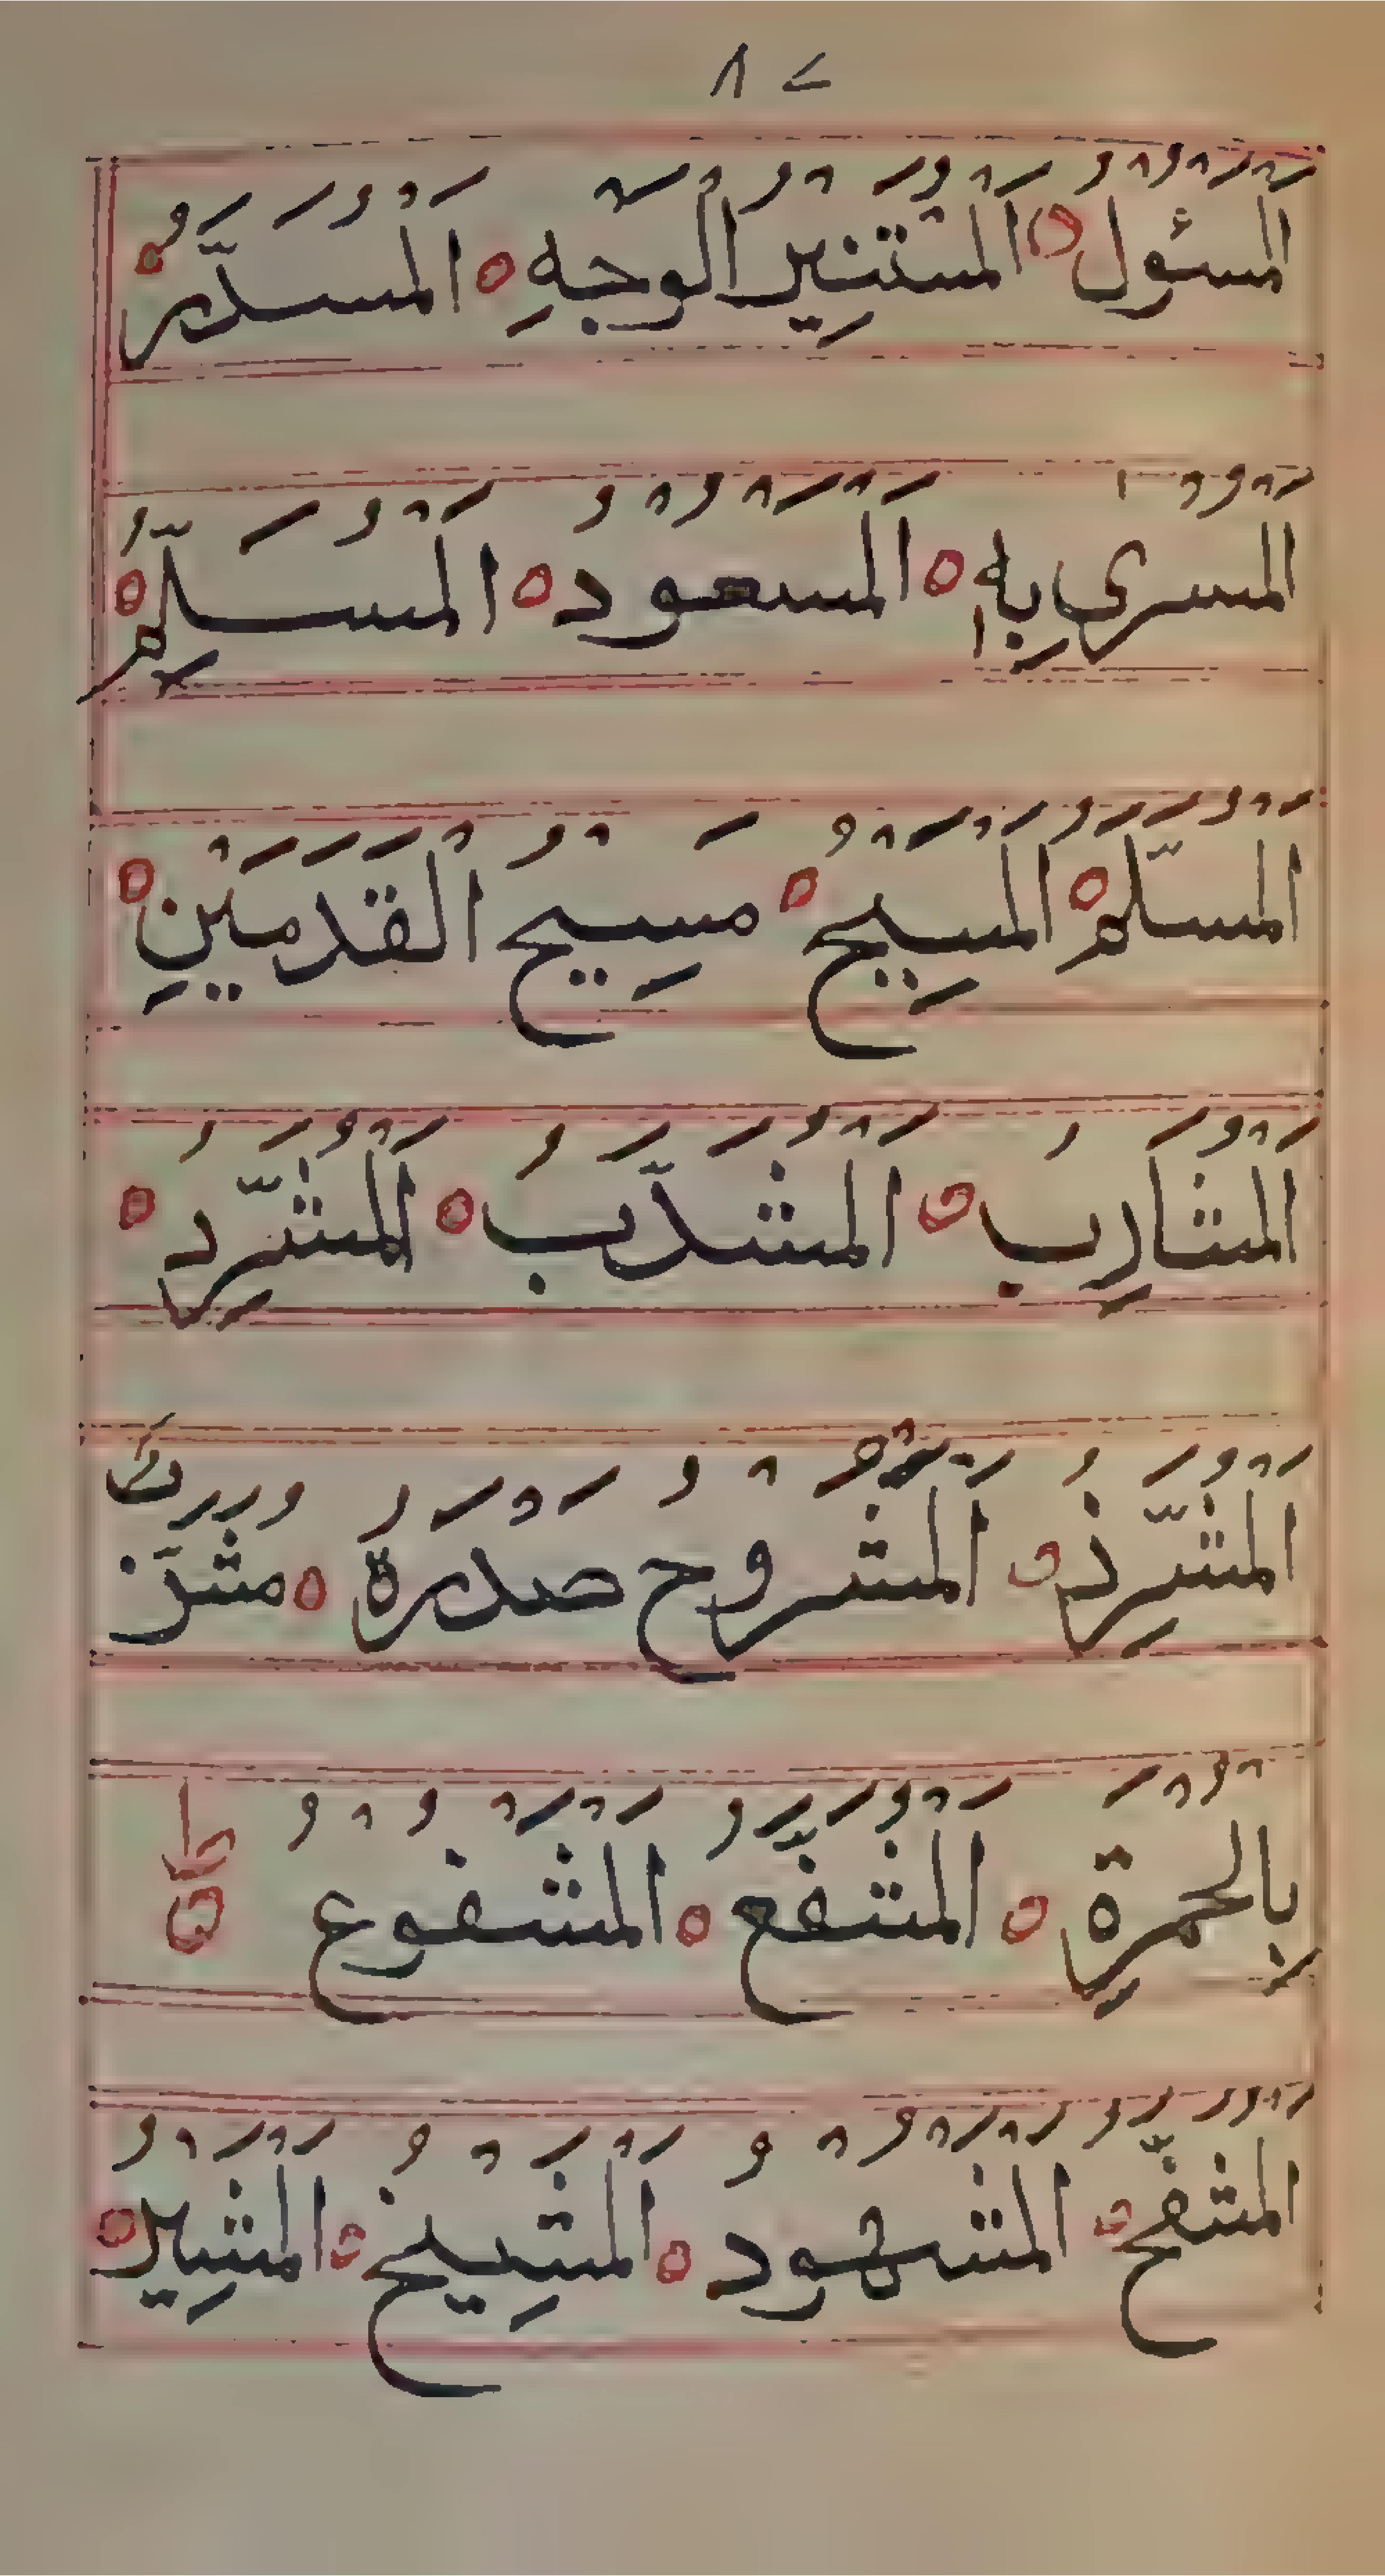 ٨٧
اَلْمَسْئُوْلُ ۝ اَلْمُسْتَنِيْرُ الْوَجْهِ ۝ اَلْمُسَدَّرُ ۝
اَلْمُسْرٰى بِهٖ ۝ اَلْمَسْعُوْدُ ۝ اَلْمُسَلِّمُ ۝
اَلْمُسَلَّمُ ۝ اَلْمَسِيْحُ ۝ مَسِيْحُ الْقَدَمَيْنِ ۝
اَلْمُشَارِبُ ۝ اَلْمُشَدَّبُ ۝ اَلْمُشَرِّدُ ۝
اَلْمُشَرِّذُ ۝ اَلْمَشْرُوْحُ صَدْرُهٗ ۝ مُشْرَبٌ
بِالْحُمْرَةِ ۝ اَلْمُشَفَّعُ ۝ اَلْمَشْفُوْعُ ۝
اَلْمُشَفَّحُ ۝ اَلْمَشْهُوْدُ ۝ اَلْمَشِيْخُ ۝ اَلْمُشِيْرُ ۝